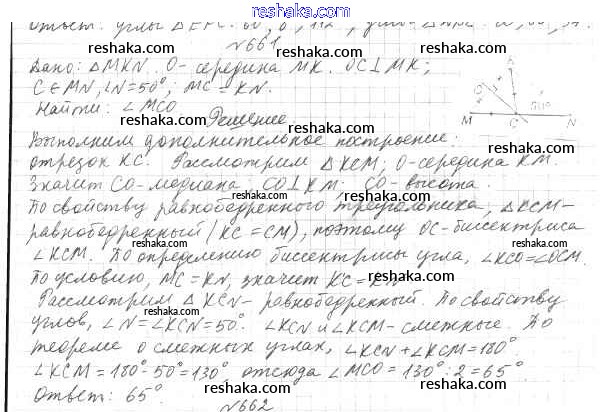 reshaka.com
Ответ: углы △EFC: 60, 8, 112
reshaka.com
№661
reshaka.com
Дано: △MKN. O - середина MK. OC⊥MK;
C∈MN, ∠N=50°; MC = KN.
Найти: ∠MCO
Решение
Выполним дополнительное построение:
отрезок KC. Рассмотрим △KCM; O-середина KM.
Значит CO-медиана; CO⊥KM; CO-высота.
По свойству равнобедренного треугольника, △KCM-
равнобедренный (KC=CM), поэтому OC-биссектриса
∠KCM. По определению биссектрисы угла, ∠KCO=∠OCM.
По условию, MC=KN, значит KC=KN
Рассмотрим △KCN- равнобедренный. По свойству
углов, ∠N=∠KCN=50°. ∠KCN и ∠KCM-смежные. По
теореме о смежных углах, ∠KCN+∠KCM=180°.
∠KCM=180°-50°=130° отсюда ∠MCO=130°:2=65°
Ответ: 65°
№662
M
C
N
50°
reshaka.com